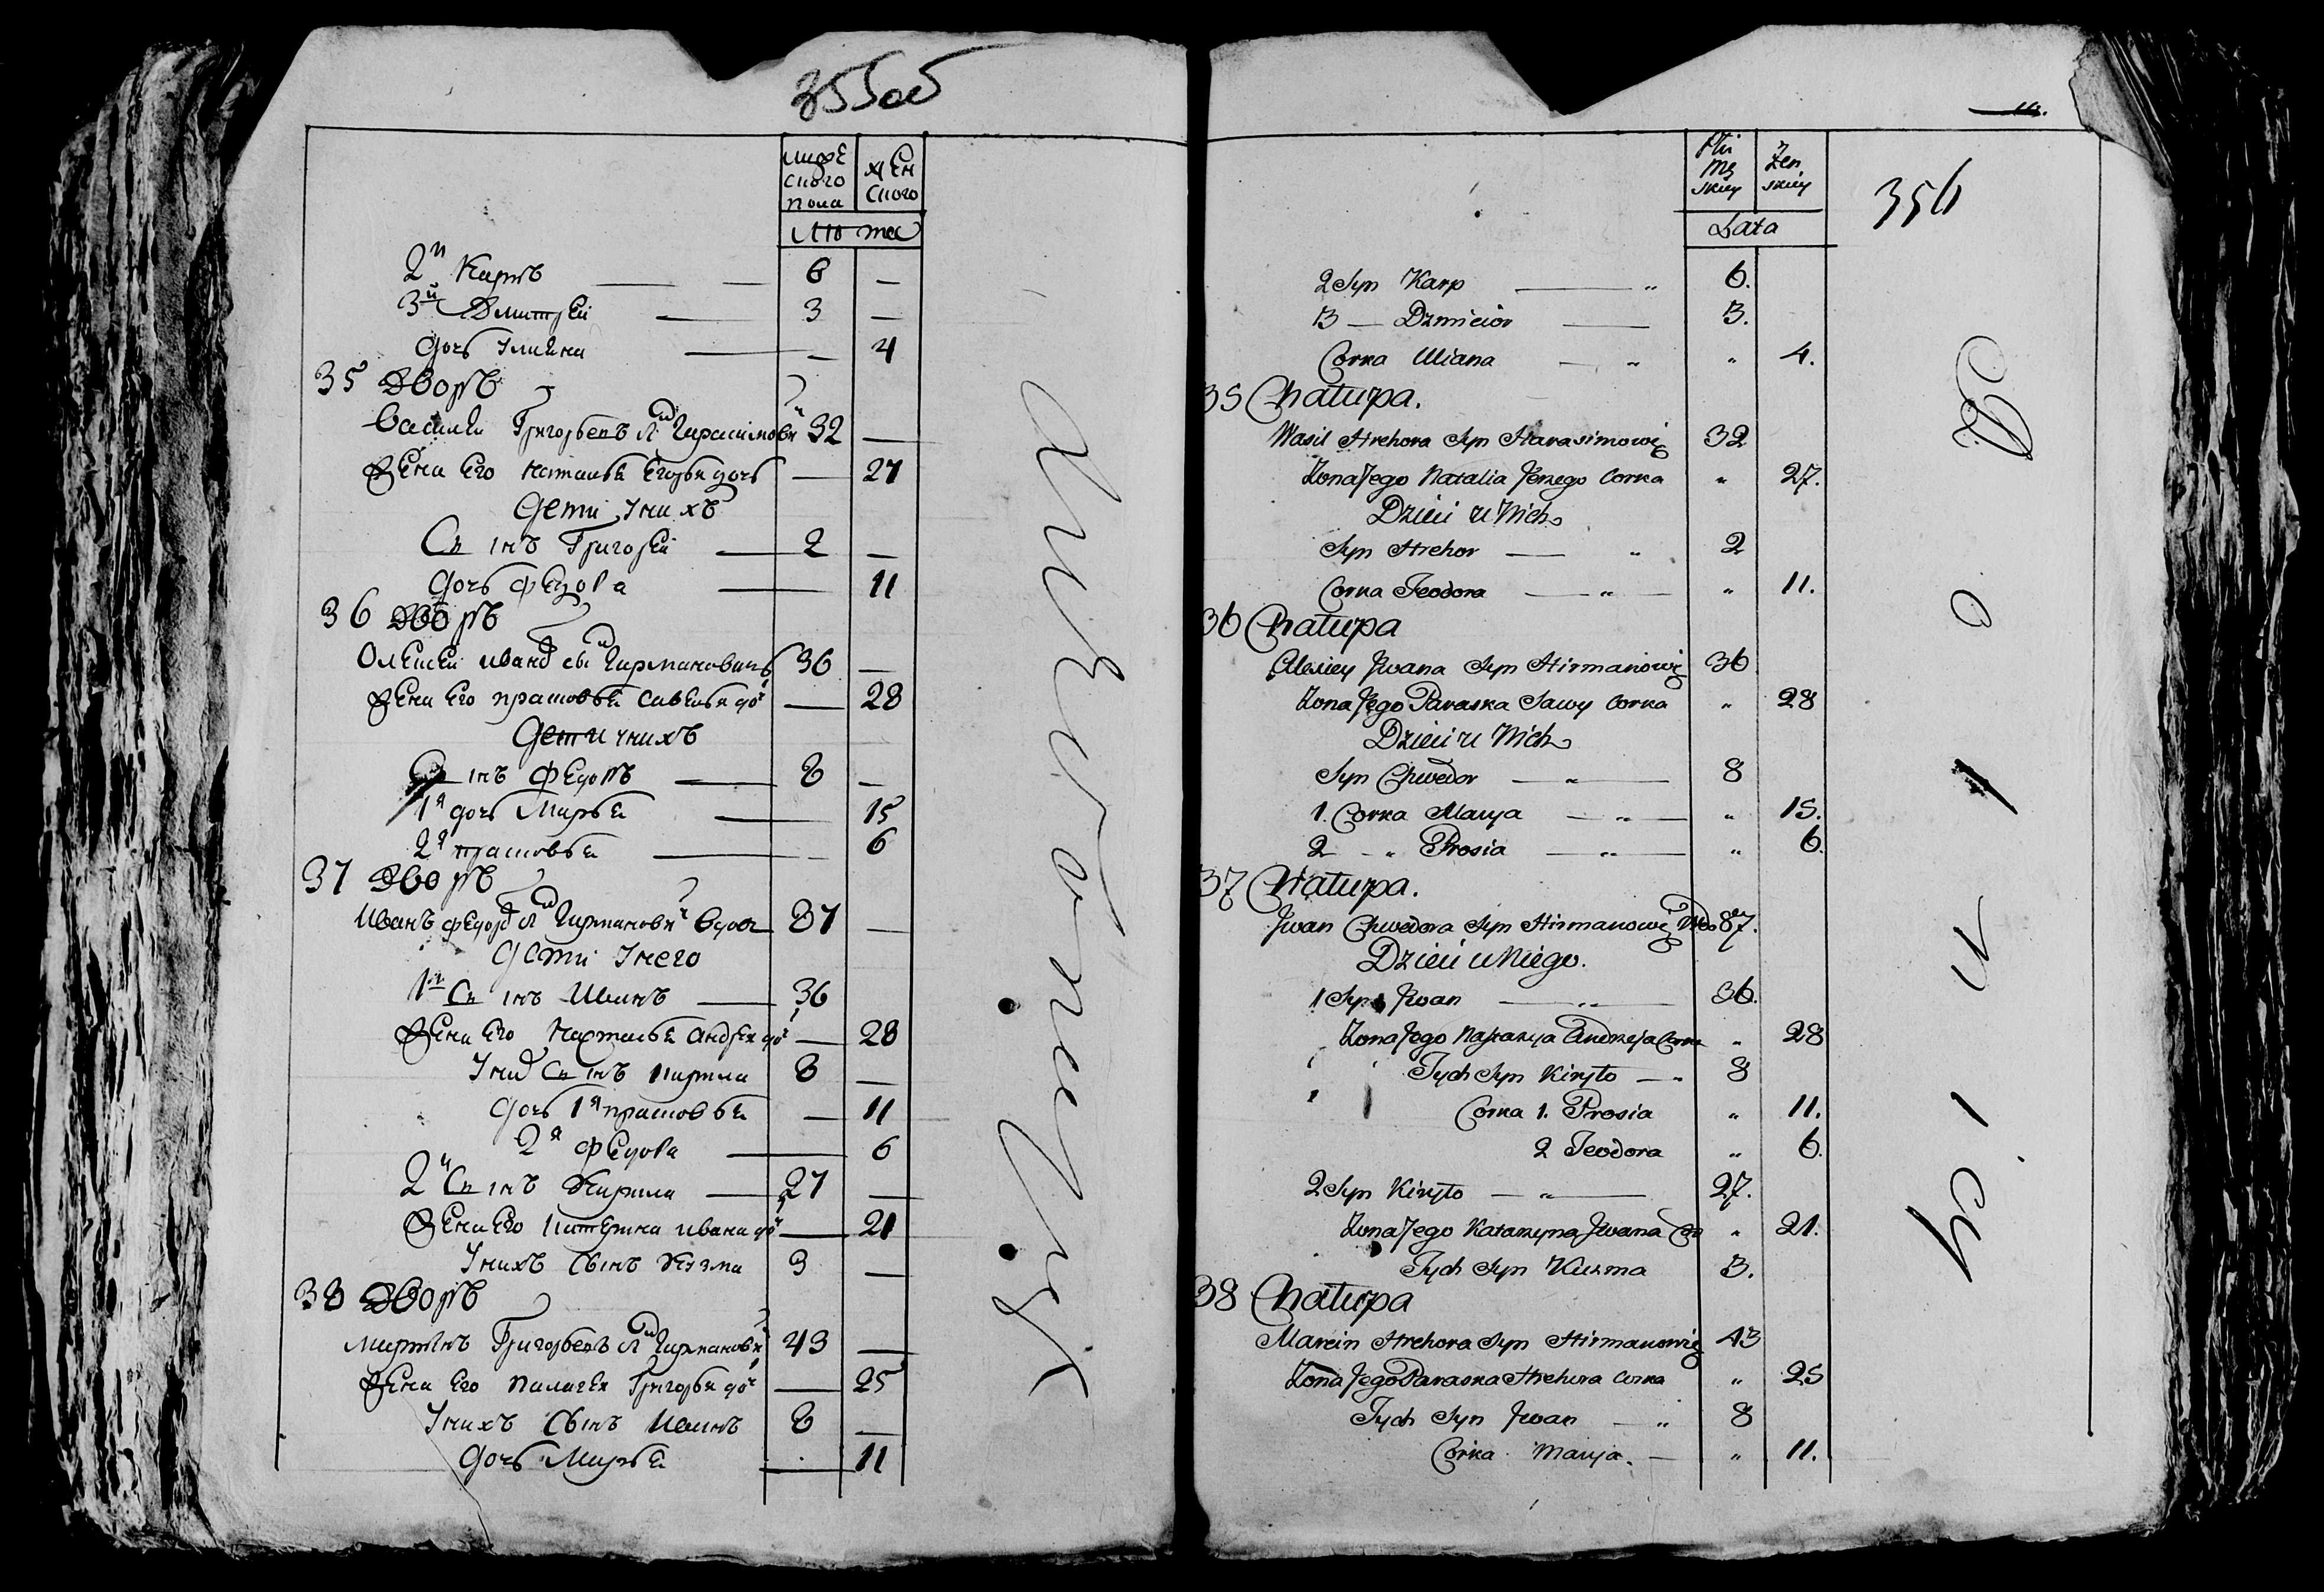 355об
мужеского пола
женского
лета
2й Карпъ — — 6 —
3й Дмитрей — 3 —
дочь Улияна — — 4
35 Дворъ
Василей Григорьевъ Гарасимови 32 —
Жена его Наталья Егорья дочь — 27
Дети у нихъ
Сынъ Григорей — 2 —
дочь Федора — 11
36 Дворъ
Олексей Иванов сы Гирмановичъ 36 —
Жена его Прасковья Савелья до — 28
Дети у нихъ
Сынъ Федоръ — 8 —
1я дочь Марья — 15
2я Прасковья — — 6
37 Дворъ
Иванъ Федор Гирманович вдов 87 —
Дети у него
1й Сынъ Иванъ — 36
Жена его Настасья Андрея до — 28
У них Сынъ Кирила 8 —
дочь 1я Прасковья — 11
2я Федора — 6
2й Сынъ Кирила — 27 —
Жена его Катерина Ивана до — 21
У нихъ Сынъ Кузма 3 —
38 Дворъ
Мартинъ Григорьевъ Гирманови 43 —
Жена его Палагея Григорья до — 25
У нихъ Сынъ Иванъ 8 —
дочь Марья — 11
Płci Męskiey
Żenskiey
356
Lata
2 Syn Karp — „ 6.
3 — Dzmicior — 3.
Corka Uliana — „ „ 4.
35 Chatupa.
Wasil Hrehora Syn Harasimowicz 32
Zona Jego Natalia Jerzego Corka „ 27.
Dzieci u Nich
Syn Hrehor — „ 2
Corka Teodora — „ — „ 11.
36 Chatupa
Alexiey Jwana Syn Hirmanowicz 36
Zona Jego Paraska Sawy Corka „ 28
Dzieci u Nich
Syn Chwedor — „ — 8
1. Corka Marya — „ — „ 15.
2 — „ Prosia — „ — „ 6.
37 Chatupa.
Jwan Chwedora Syn Hirmanowicz Wdo 87.
Dzieci u Niego.
1 Syn Jwan — „ — 36.
Zona Jego Nastazya Andrzeja Corka „ 28
Tych Syn Kiryło — „ 8
Corka 1. Prosia „ 11.
2 Teodora „ 6.
2 Syn Kiryło — „ — 27.
Zona Jego Katarzyna Jwana Cor „ 21.
Tych Syn Kuzma 3.
38 Chatupa
Marcin Hrehora Syn Hirmanowicz 43
Zona Jego Paraska Hrehora Corka „ 25
Tych Syn Jwan — „ 8
Corka Marya. — „ 11.